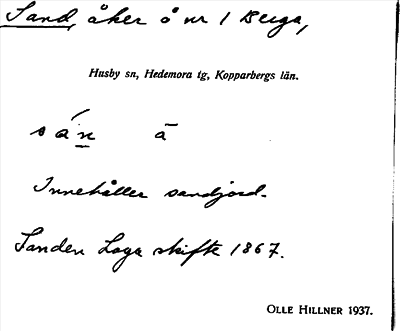 Sand, åker å nr 1 Berga,
Husby sn, Hedemora tg, Kopparbergs län.
sán ā
Innehåller sandjord.
Sanden Laga skifte 1867.
OLLE HILLNER 1937.